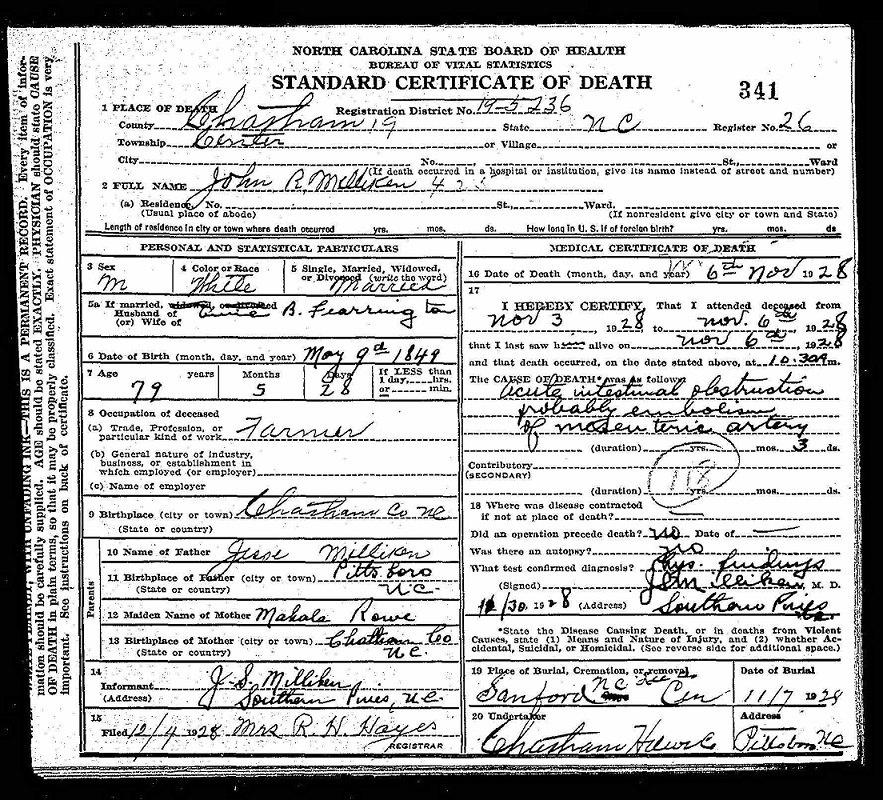 NORTH CAROLINA STATE BOARD OF HEALTH
BUREAU OF VITAL STATISTICS
STANDARD CERTIFICATE OF DEATH
341
1 PLACE OF DEATH
Registration District No. 19-5236
County Chatham 19 State NC Register No. 26
Township Center or Village or
City No. St., Ward
(If death occurred in a hospital or institution, give its name instead of street and number)
2 FULL NAME John R. Milliken
(a) Residence, No. St., Ward.
(Usual place of abode) (If nonresident give city or town and State)
Length of residence in city or town where death occurred yrs. mos. ds. How long in U. S. if of foreign birth? yrs. mos. ds
PERSONAL AND STATISTICAL PARTICULARS
3 Sex 4 Color or Race 5 Single, Married, Widowed, or Divorced (write the word)
M White Married
5a If married, widowed, or divorced
Husband of B. Fearrington
(or) Wife of
6 Date of Birth (month, day, and year) May 9d 1849
7 Age years Months Days If LESS than 1 day, hrs. or min.
79 5 28
8 Occupation of deceased
(a) Trade, Profession, or particular kind of work Farmer
(b) General nature of industry, business, or establishment in which employed (or employer)
(c) Name of employer
9 Birthplace (city or town) Chatham Co NC
(State or country)
Parents
10 Name of Father Jesse Milliken
11 Birthplace of Father (city or town) Pittsboro
(State or country) N.C.
12 Maiden Name of Mother Mahala Rowe
13 Birthplace of Mother (city or town) Chatham Co
(State or country) N.C.
14
Informant J. S. Milliken
(Address) Southern Pines, N.C.
15
Filed 12/4 1928 Mrs R. H. Hayes
REGISTRAR
MEDICAL CERTIFICATE OF DEATH
16 Date of Death (month, day, and year) 6th Nov 1928
17
I HEREBY CERTIFY, That I attended deceased from
Nov 3, 1928 to Nov. 6th, 1928
that I last saw h alive on Nov 6th, 1928
and that death occurred, on the date stated above, at 10.30 m.
The CAUSE OF DEATH* was as follows:
Acute intestinal obstruction
probably embolism
of mesenteric artery
(duration) yrs. mos. 3 ds.
Contributory
(SECONDARY)
118
(duration) yrs. mos. ds.
18 Where was disease contracted
if not at place of death?
Did an operation precede death? no Date of
Was there an autopsy? no
What test confirmed diagnosis? Phys findings
(Signed) Milliken, M. D.
/30, 1928 (Address) Southern Pines
*State the Disease Causing Death, or in deaths from Violent
Causes, state (1) Means and Nature of Injury, and (2) whether Ac-
cidental, Suicidal, or Homicidal. (See reverse side for additional space.)
19 Place of Burial, Cremation, or removal Date of Burial
Sanford NC Cem 11/7 1928
20 Undertaker Address
Chatham Hdw Co Pittsboro NC
WITH UNFADING INK—THIS IS A PERMANENT RECORD. Every item of infor-
mation should be carefully supplied. AGE should be stated EXACTLY. PHYSICIAN should state CAUSE
OF DEATH in plain terms, so that it may be properly classified. Exact statement of OCCUPATION is very
important. See instructions on back of certificate.